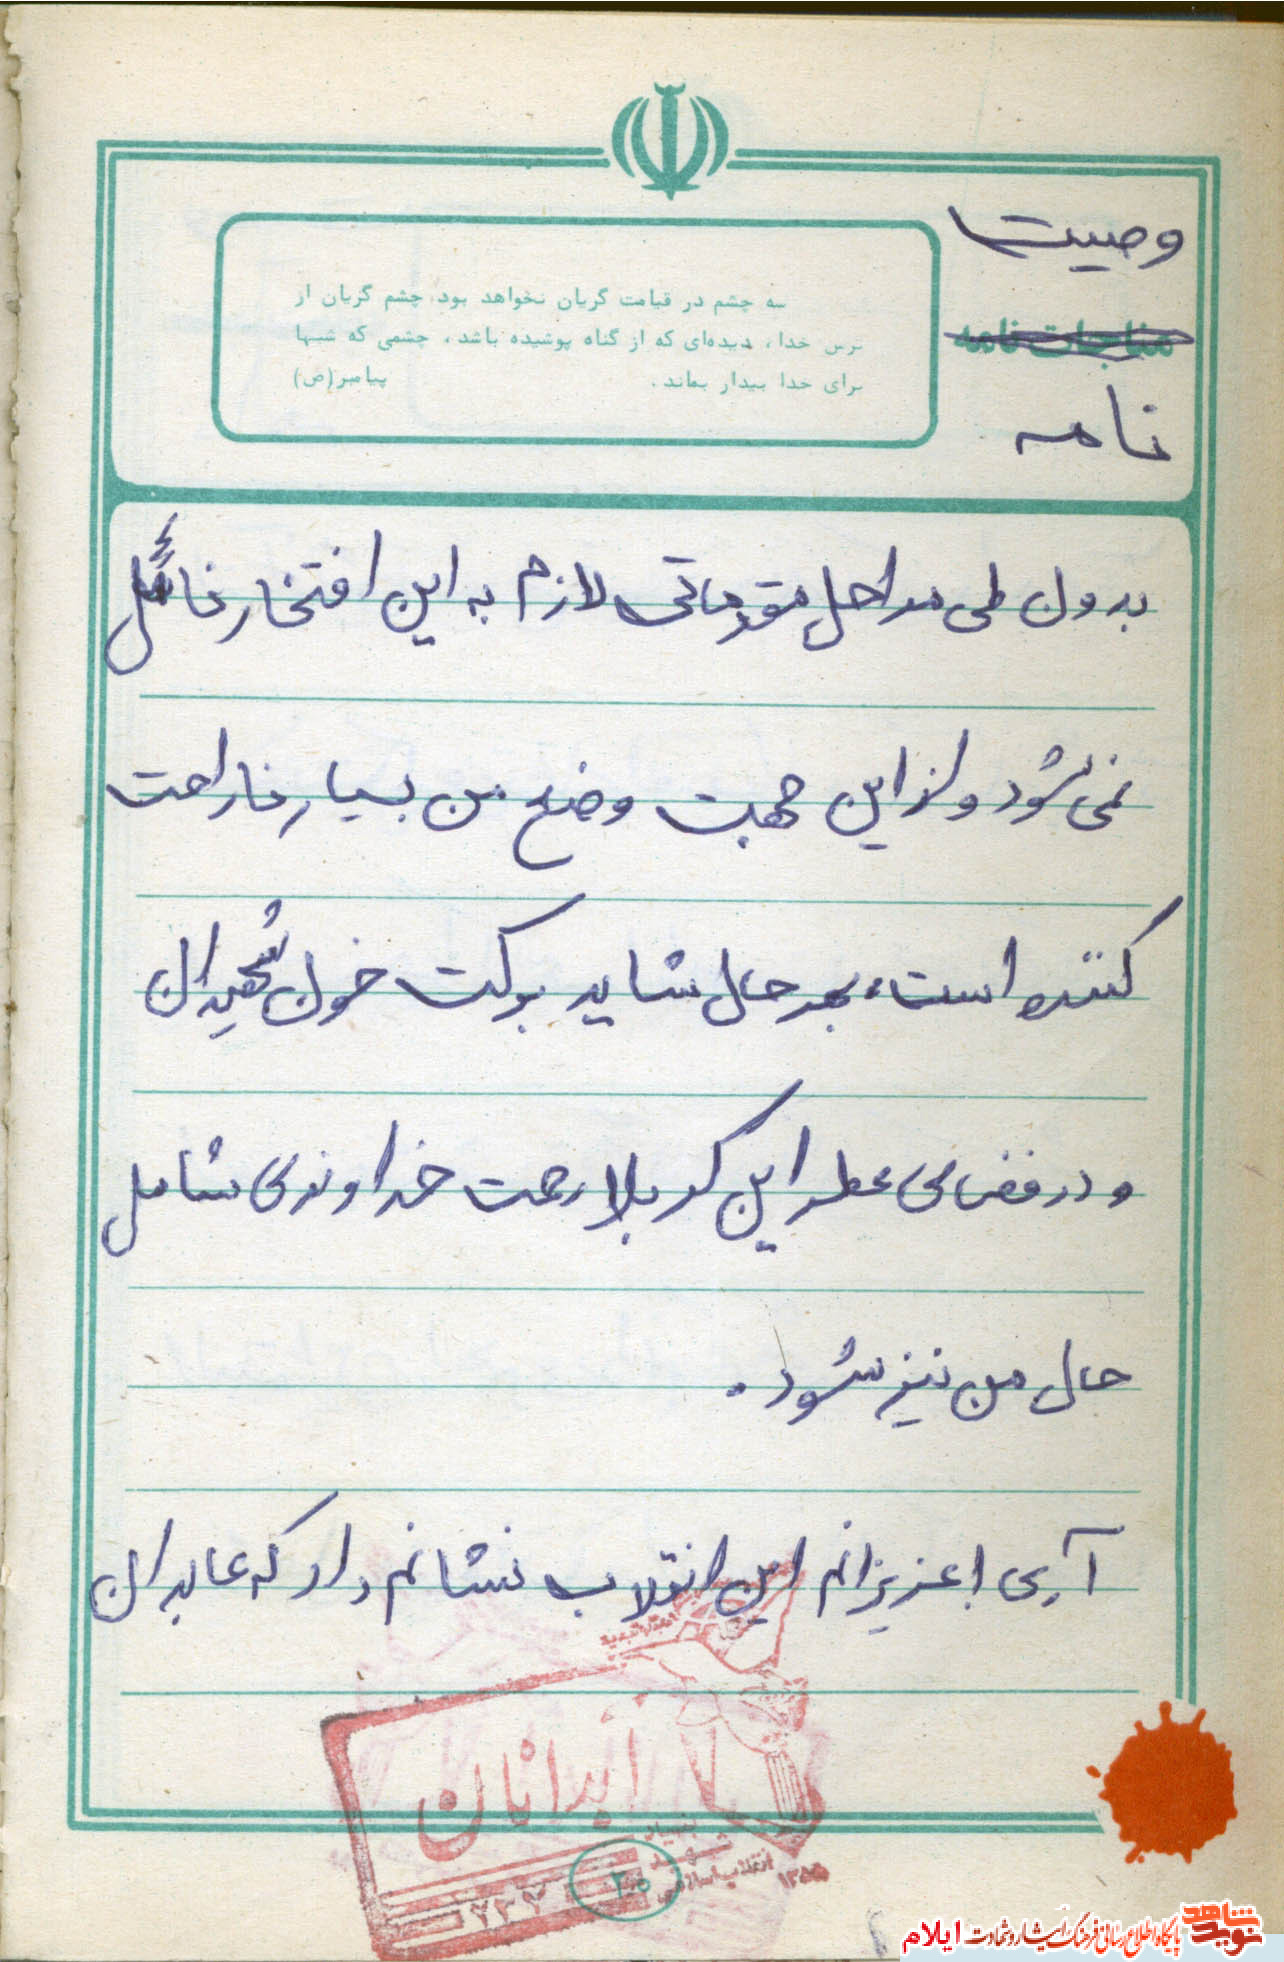 وصیت
سه چشم در قیامت گریان نخواهد بود، چشم گریان از
ترس خدا، دیده‌ای که از گناه پوشیده باشد، چشمی که شبها
برای خدا بیدار بماند.
پیامبر(ص)
مناجات نامه
نامه
بدون طی مراحل مقدماتی لازم به این افتخار نائل
نمی‌شود و از این جهت وضع من بسیار ناراحت
کننده است، بهر حال شاید برکت خون شهیدان
و در فضای عطر این کربلا رحمت خداوندی شامل
حال من نیز شود.
آری عزیزانم این انقلاب نشانم داد که عابدان
آبدانان
بنیاد
شهید
انقلاب اسلامی
۲۰
نوید شاهد
پایگاه اطلاع رسانی فرهنگ ایثار و شهادت ایلام